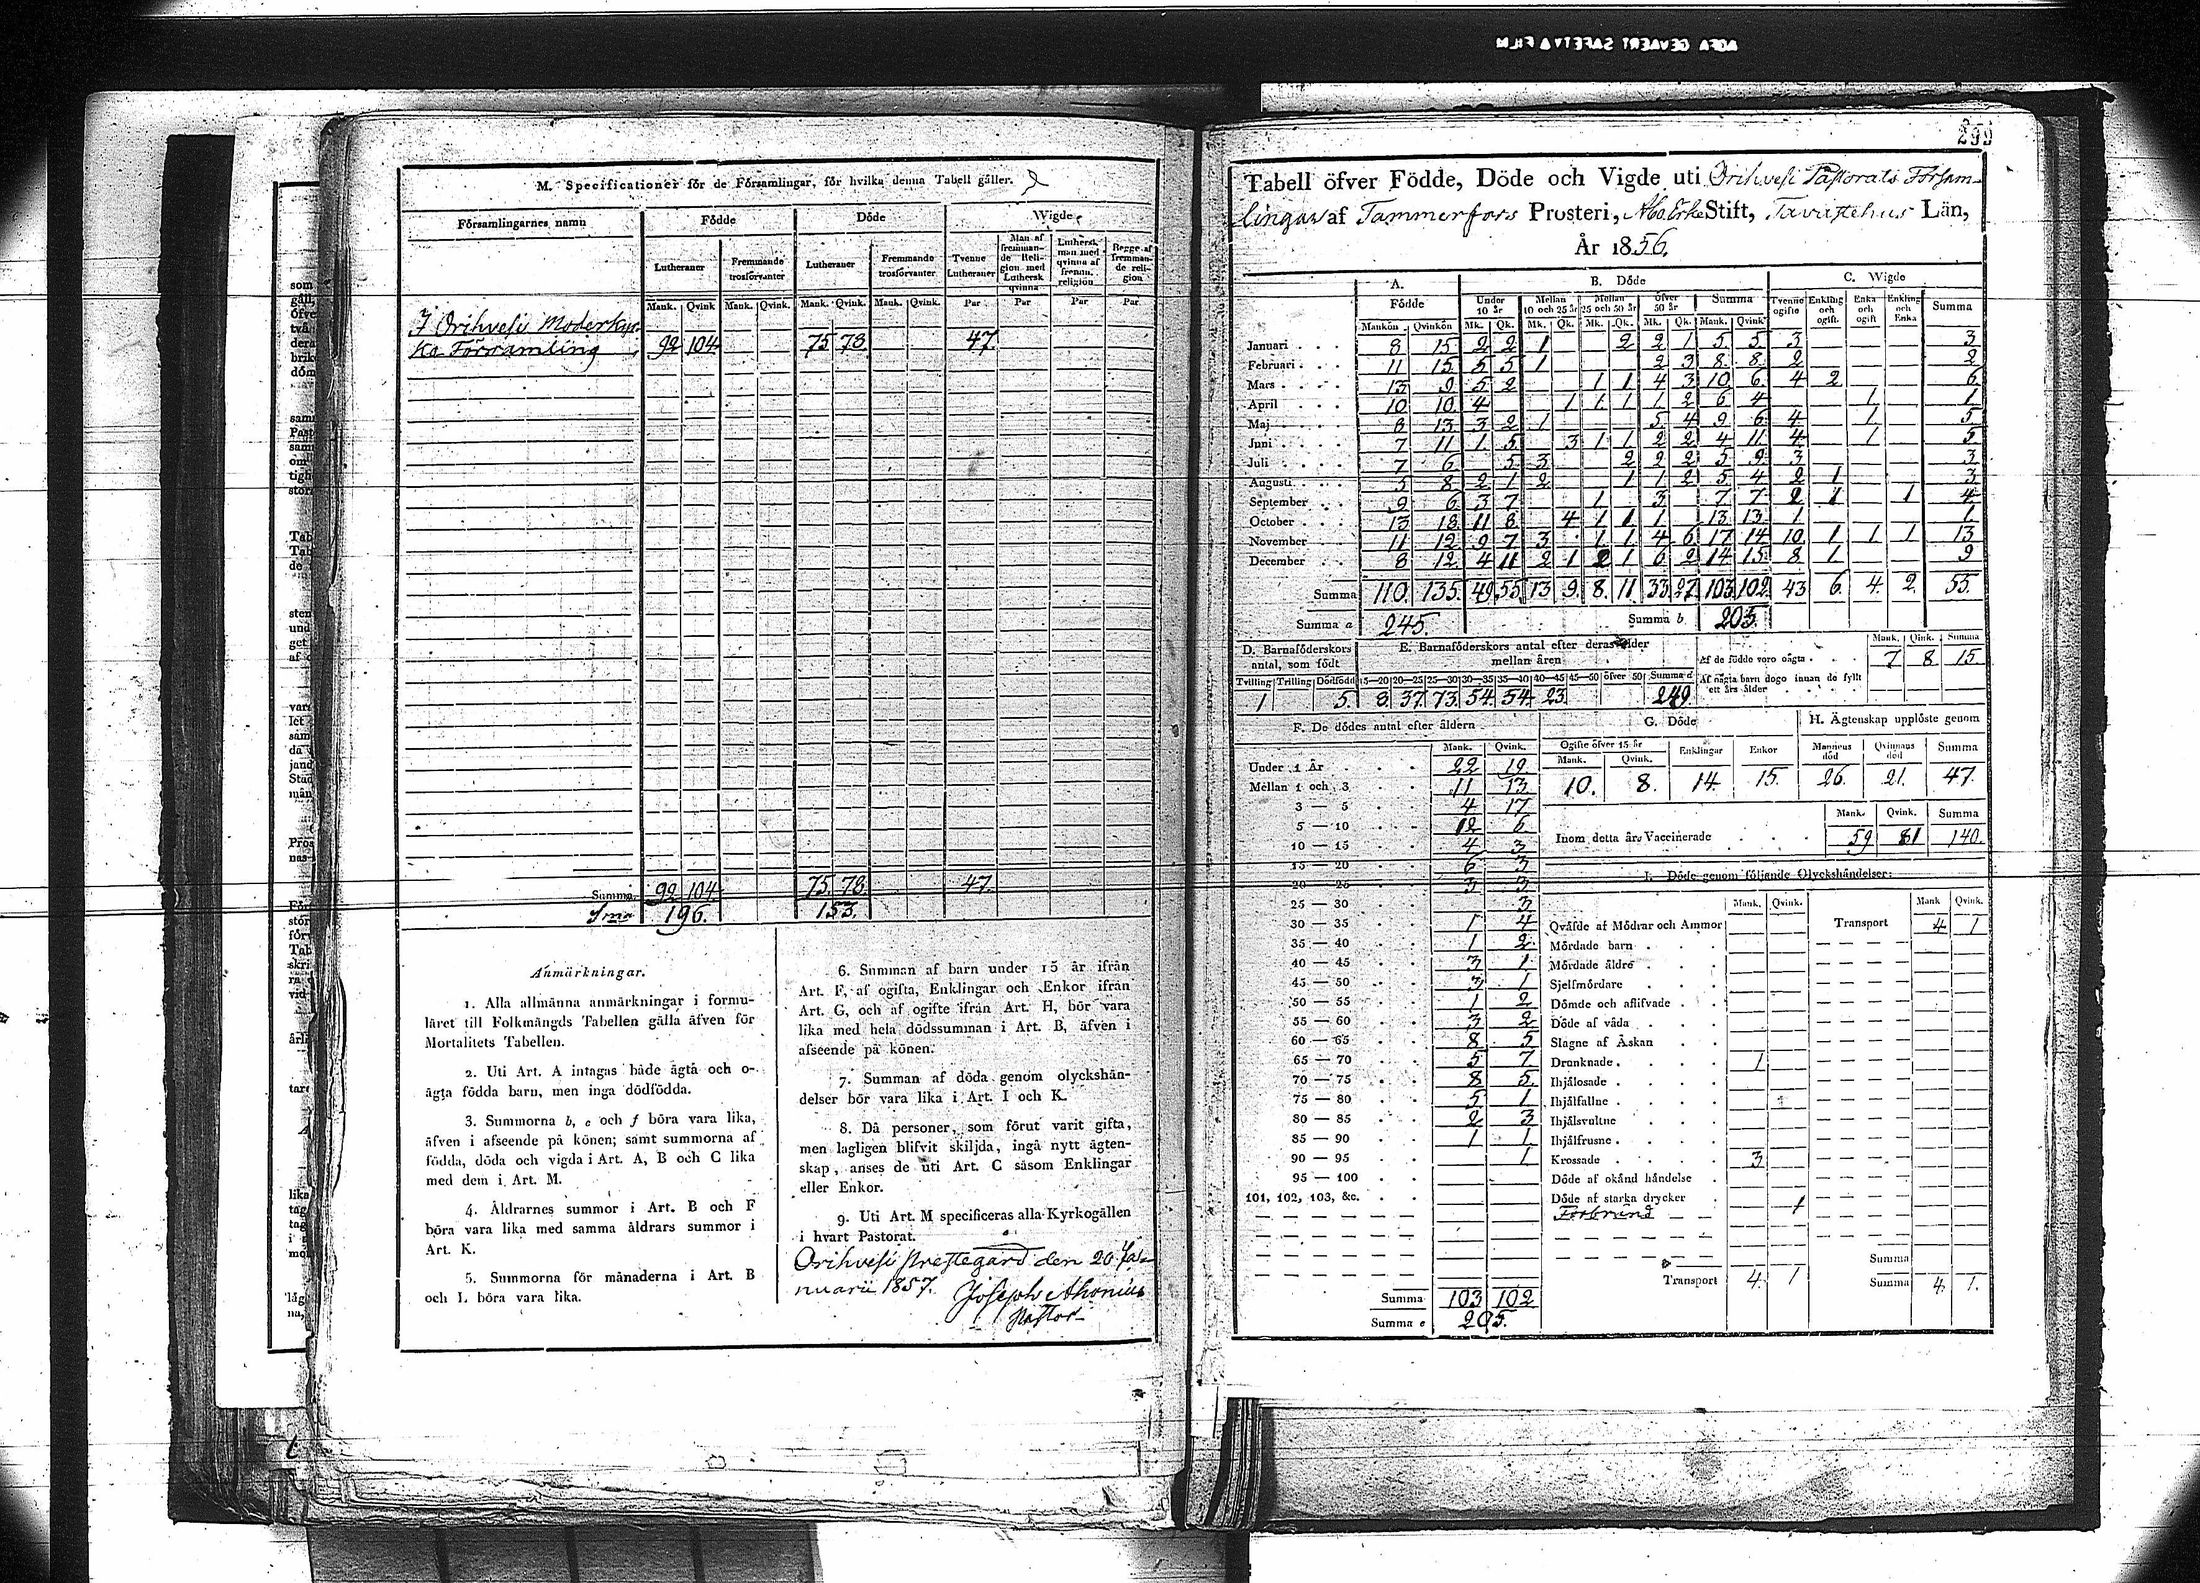 AGFA GEVAERT SAFETY FILM
M. Specificationer för de Församlingar, för hvilka denna Tabell gäller.
Församlingarnes namn Födde Döde Wigde
Lutheraner Fremmande trosförvanter Lutheraner Fremmande trosförvanter Tvenne Lutheraner Man af fremmande Religion med Luthersk qvinna Luthersk man med qvinna af fremm. religion Begge af fremmande religion
Mank. Qvink Mank. Qvink. Mank. Qvink. Mank. Qvink. Par Par Par Par
I Orihvesi Moderkyr-
ko Församling 92 104 75 78 47
Summa 92 104 75 78 47
Sma 196. 153.
Anmärkningar.
1. Alla allmänna anmärkningar i formu-
läret till Folkmängds Tabellen gälla äfven för
Mortalitets Tabellen.
2. Uti Art. A intagas både ägta och o-
ägta födda barn, men inga dödfödda.
3. Summorna b, e och f böra vara lika,
äfven i afseende på könen; samt summorna af
födda, döda och vigda i Art. A, B och C lika
med dem i Art. M.
4. Åldrarnes summor i Art. B och F
böra vara lika med samma åldrars summor i
Art. K.
5. Summorna för månaderna i Art. B
och L böra vara lika.
6. Summan af barn under 15 år ifrån
Art. F, af ogifta, Enklingar och Enkor ifrån
Art. G, och af ogifte ifrån Art. H, bör vara
lika med hela dödssumman i Art. B, äfven i
afseende på könen.
7. Summan af döda genom olyckshän-
delser bör vara lika i Art. I och K.
8. Då personer, som förut varit gifta,
men lagligen blifvit skiljda, ingå nytt ägten-
skap, anses de uti Art. C såsom Enklingar
eller Enkor.
9. Uti Art. M specificeras alla Kyrkogällen
i hvart Pastorat.
Orihvesi Prestegård den 20 Ja-
nuarii 1857. Joseph Ahonius
Pastor
299
Tabell öfver Födde, Döde och Vigde uti Orihvesi Pastorats Försam-
lingar af Tammerfors Prosteri, Åbo Erke Stift, Tavastehus Län,
År 1856.
A. B. Döde C. Wigde
Födde Under 10 år Mellan 10 och 25 år Mellan 25 och 50 år Öfver 50 år Summa Tvenne ogifte Enkling och ogift. Enka och ogift Enkling och Enka Summa
Mankön Qvinkön Mk. Qk. Mk. Qk. Mk. Qk. Mk. Qk. Mank. Qvink
Januari 8 15 2 2 1 2 2 1 5 5 3 3
Februari 11 15 5 5 1 2 3 8 8 2 2
Mars 13 9 5 2 1 1 4 3 10 6 4 2 6
April 10 10 4 1 1 1 1 2 6 4 1 1
Maj 8 13 3 2 1 5 4 9 6 4 1 5
Juni 7 11 1 5 3 1 1 2 2 4 11 4 1 5
Juli 7 6 5 3 2 2 2 5 9 3 3
Augusti 5 8 2 1 2 1 1 2 5 4 2 1 3
September 9 6 3 7 1 3 7 7 2 1 1 4
October 13 18 11 8 4 1 1 1 13 13 1 1
November 11 12 9 7 3 1 1 4 6 17 14 10 1 1 1 13
December 8 12 4 11 2 1 2 1 6 2 14 15 8 1 9
Summa 110. 135. 49 55 13 9 8. 11 33 27 103 102 43 6. 4. 2. 55.
Summa a 245. Summa b 205.
D. Barnaföderskors antal, som födt E. Barnaföderskors antal efter deras ålder mellan åren Mank. Qink. Summa
Af de födde voro oägta 7 8 15
Af oägta barn dogo innan de fyllt ett års ålder
Tvilling Trilling Dödfödd 15—20 20—25 25—30 30—35 35—40 40—45 45—50 öfver 50 Summa d
1 5. 8. 37. 73. 54. 54. 23. 249
F. De dödes antal efter åldern G. Döde H. Ägtenskap upplöste genom
Mank. Qvink. Ogifte öfver 15 år Enklingar Enkor Mannens död Qvinnans död Summa
Mank. Qvink.
10. 8. 14. 15. 26. 21. 47.
Mank. Qvink. Summa
Inom detta år Vaccinerade 59 81 140.
Under 1 År 22 19
Mellan 1 och 3 11 13
3 — 5 4 17
5 — 10 12 6
10 — 15 4 3
15 — 20 6 3
20 — 25 3 3
25 — 30 3
30 — 35 1 4
35 — 40 1 2
40 — 45 3 1
45 — 50 3 1
50 — 55 1 2
55 — 60 3 2
60 — 65 8 5
65 — 70 5 7
70 — 75 8 5
75 — 80 5 1
80 — 85 2 3
85 — 90 1 1
90 — 95 1
95 — 100
101, 102, 103, &c.
Summa 103 102
Summa e 205.
I. Döde genom följande Olyckshändelser:
Mank. Qvink. Mank Qvink.
Qväfde af Mödrar och Ammor Transport 4 1
Mördade barn
Mördade äldre
Sjelfmördare
Dömde och aflifvade
Döde af våda
Slagne af Åskan
Drunknade 1
Ihjälosade
Ihjälfallne
Ihjälsvultne
Ihjälfrusne
Krossade 3
Döde af okänd händelse
Döde af starka drycker
Förbränd 1
Summa
Transport 4. 1 Summa 4. 1.